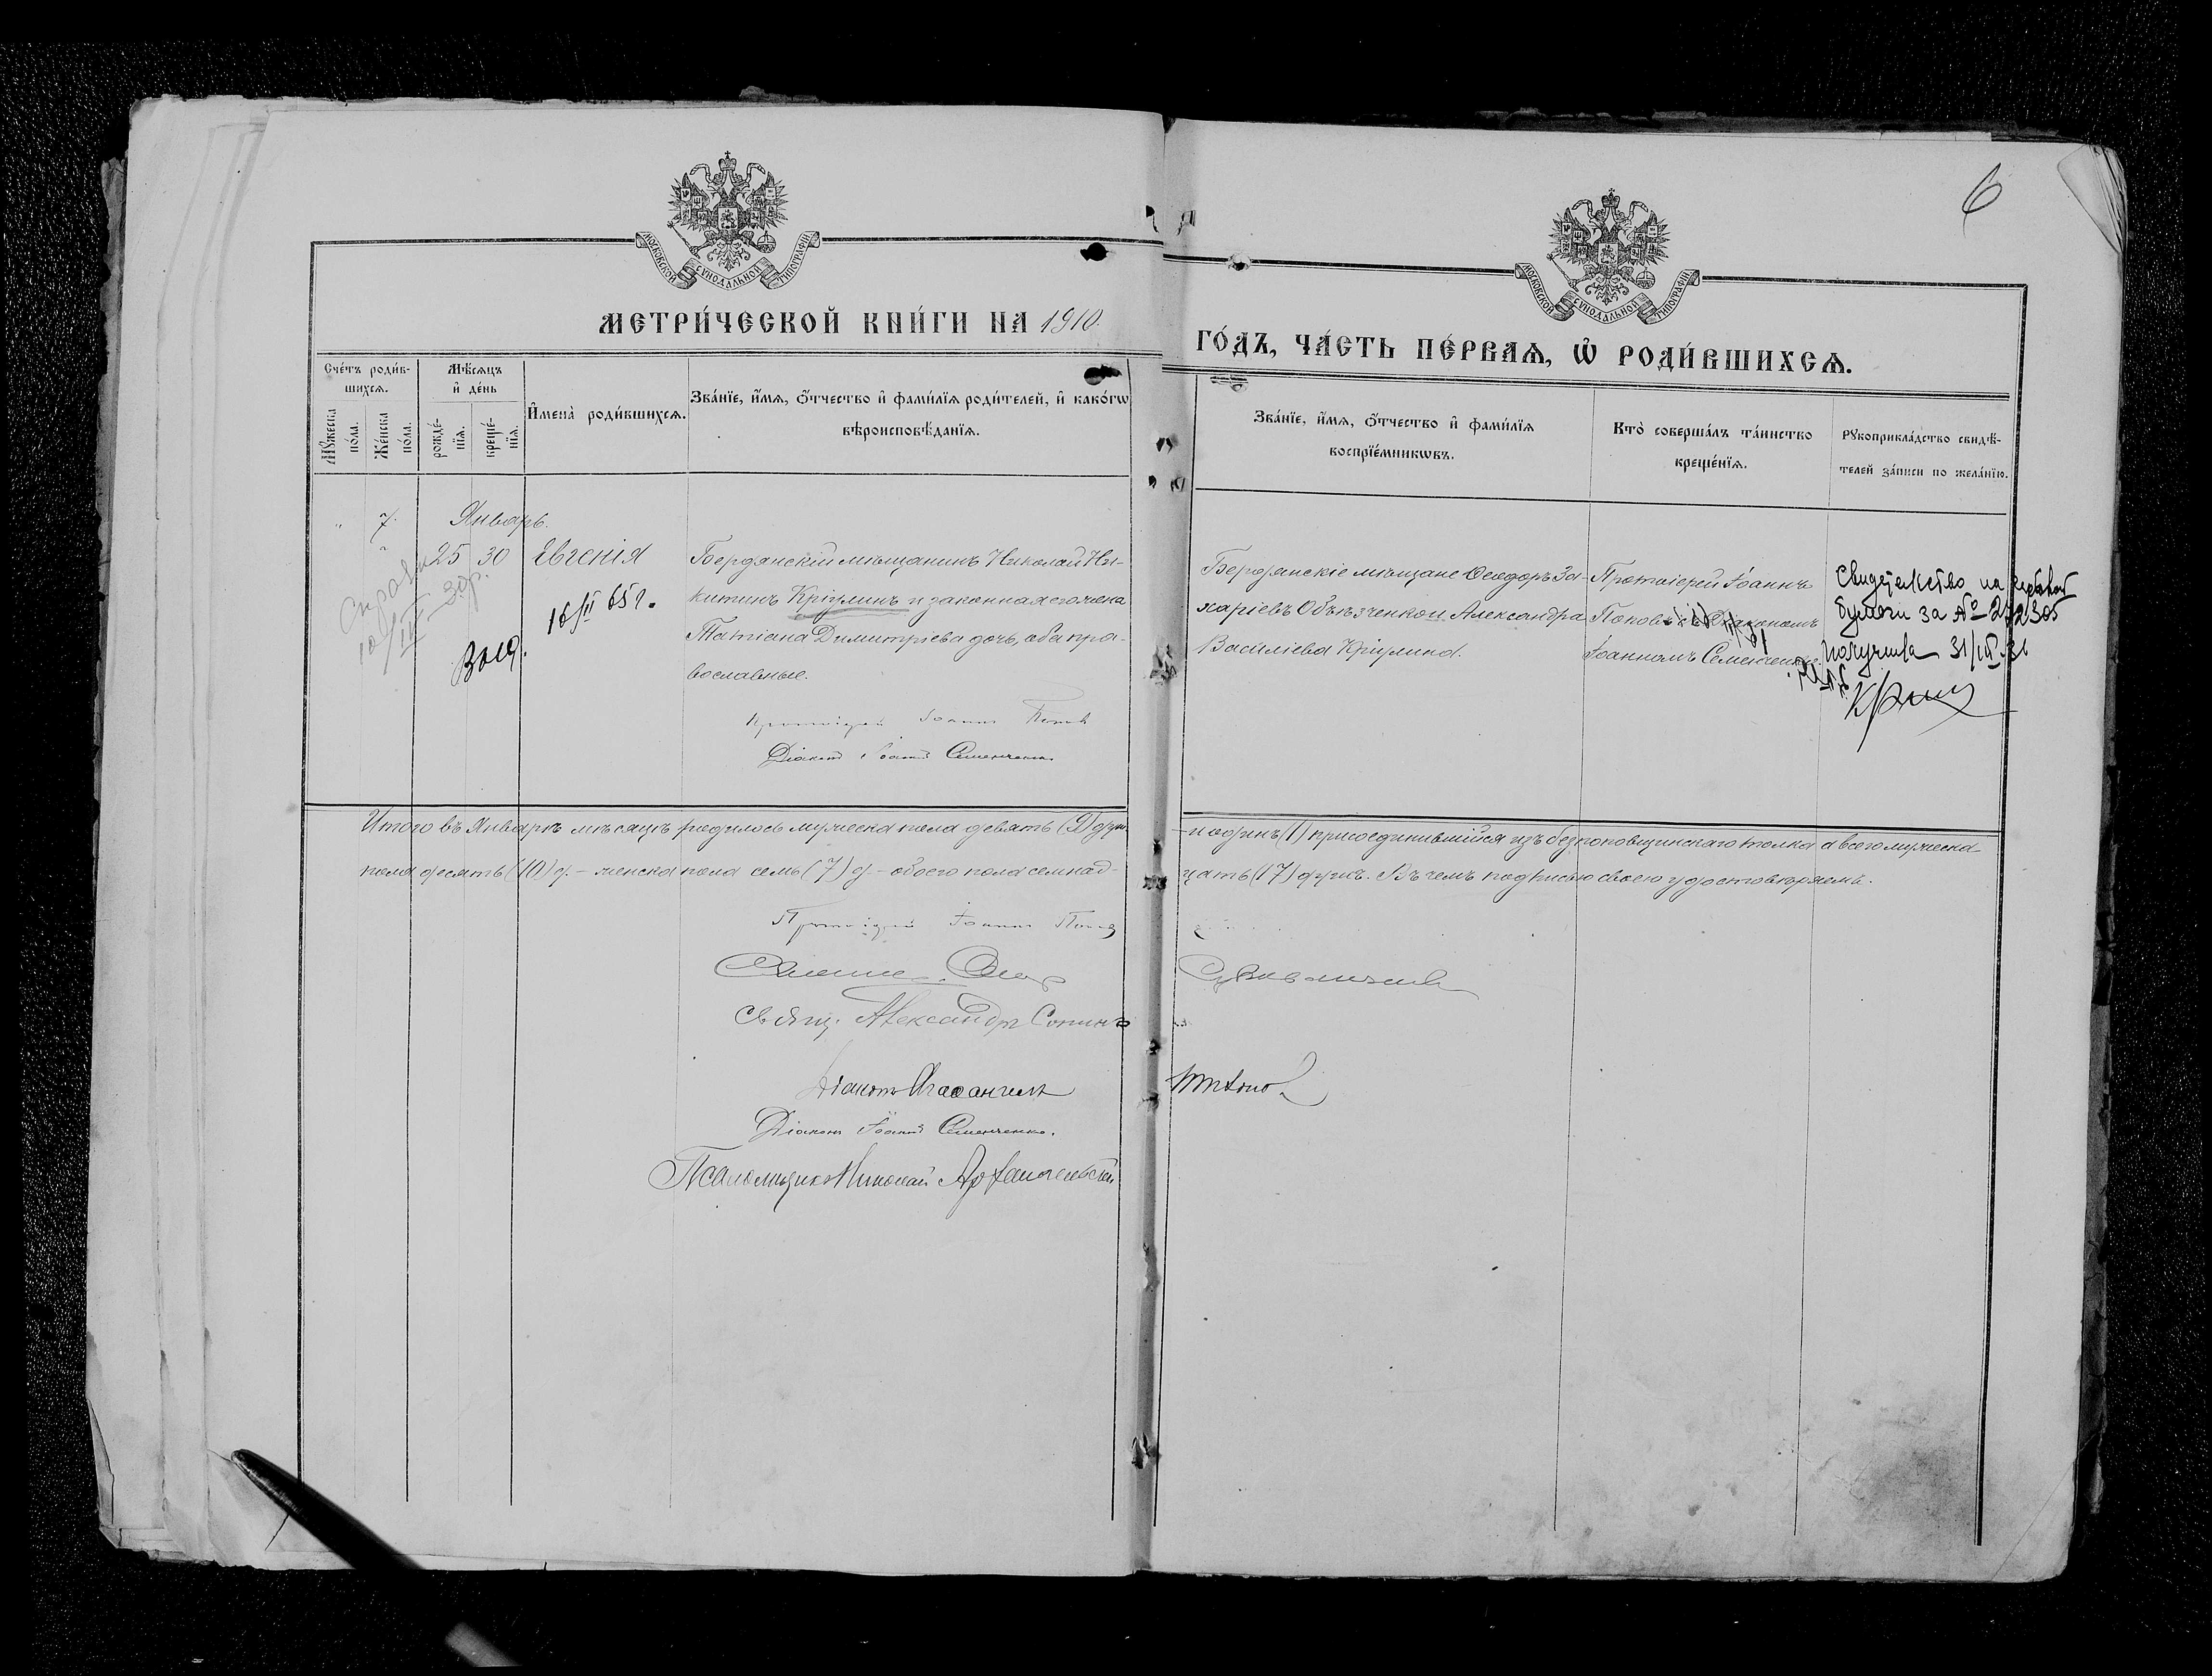 6
МОСКОВСКОЙ СѴНОДАЛЬНОЙ ТИПОГРАФІИ
МОСКОВСКОЙ СѴНОДАЛЬНОЙ ТИПОГРАФІИ
МЕТРИ́ЧЕСКОЙ КНИ́ГИ НА 1910.
ГО́ДЪ, ЧА́СТЬ ПЕ́РВАѦ, Ѡ҆ РОДИ́ВШИХСѦ.
Сче́тъ роди́в-
шихсѧ.
Мꙋ́жеска
по́ла.
Же́нска
по́ла.
Мѣ́сѧцъ
и҆ де́нь
рожде́-
нїѧ.
креще́-
нїѧ.
И҆мена̀ роди́вшихсѧ.
Зва́нїе, и҆́мѧ, ѻ҆́тчество и҆ фами́лїѧ роди́телей, и҆ како́гѡ
вѣроисповѣ́данїѧ.
Зва́нїе, и҆́мѧ, ѻ҆́тчество и҆ фами́лїѧ
воспрїе́мникѡвъ.
Кто̀ соверша́лъ та́инство
креще́нїѧ.
Рꙋкоприкла́дство свидѣ́-
телей за́писи по жела́нїю.
" 7. Январь.
25 30 Евгенія
Бердянскій мѣщанинъ Николай Ни-
китинъ Кріулинъ и законная его жена
Татіана Димитріева дочь, оба пра-
вославные.
Справка
10/III 30г.
16/II 65 г.
Протоіерей Іоаннъ Поповъ
Діаконъ Іоаннъ Семенченко
Бердянскіе мѣщане Ѳеодоръ За-
харіевъ Объѣзченко и Александра
Василіева Кріулина.
Протоіерей Іоаннъ
Поповъ съ діакономъ
Іоанномъ Семенченко.
Свидетельство на
бумаги за №
получила 31/III 31
Итого въ Январѣ мѣсяцѣ родилось мужеска пола девять (9) душ.
и одинъ (1) присоединившійся изъ безпоповщинскаго толка а всего мужеска
пола десять (10) д. – женска пола семь (7) д – обоего пола семнад-
цать (17) душъ. Въ чемъ подписью своею удостовѣряемъ.
Протоіерей Іоаннъ Поповъ
Свящ. Александръ Сопинъ
Діаконъ
Діаконъ Іоаннъ Семенченко.
Псаломщикъ Николай Архангельскій